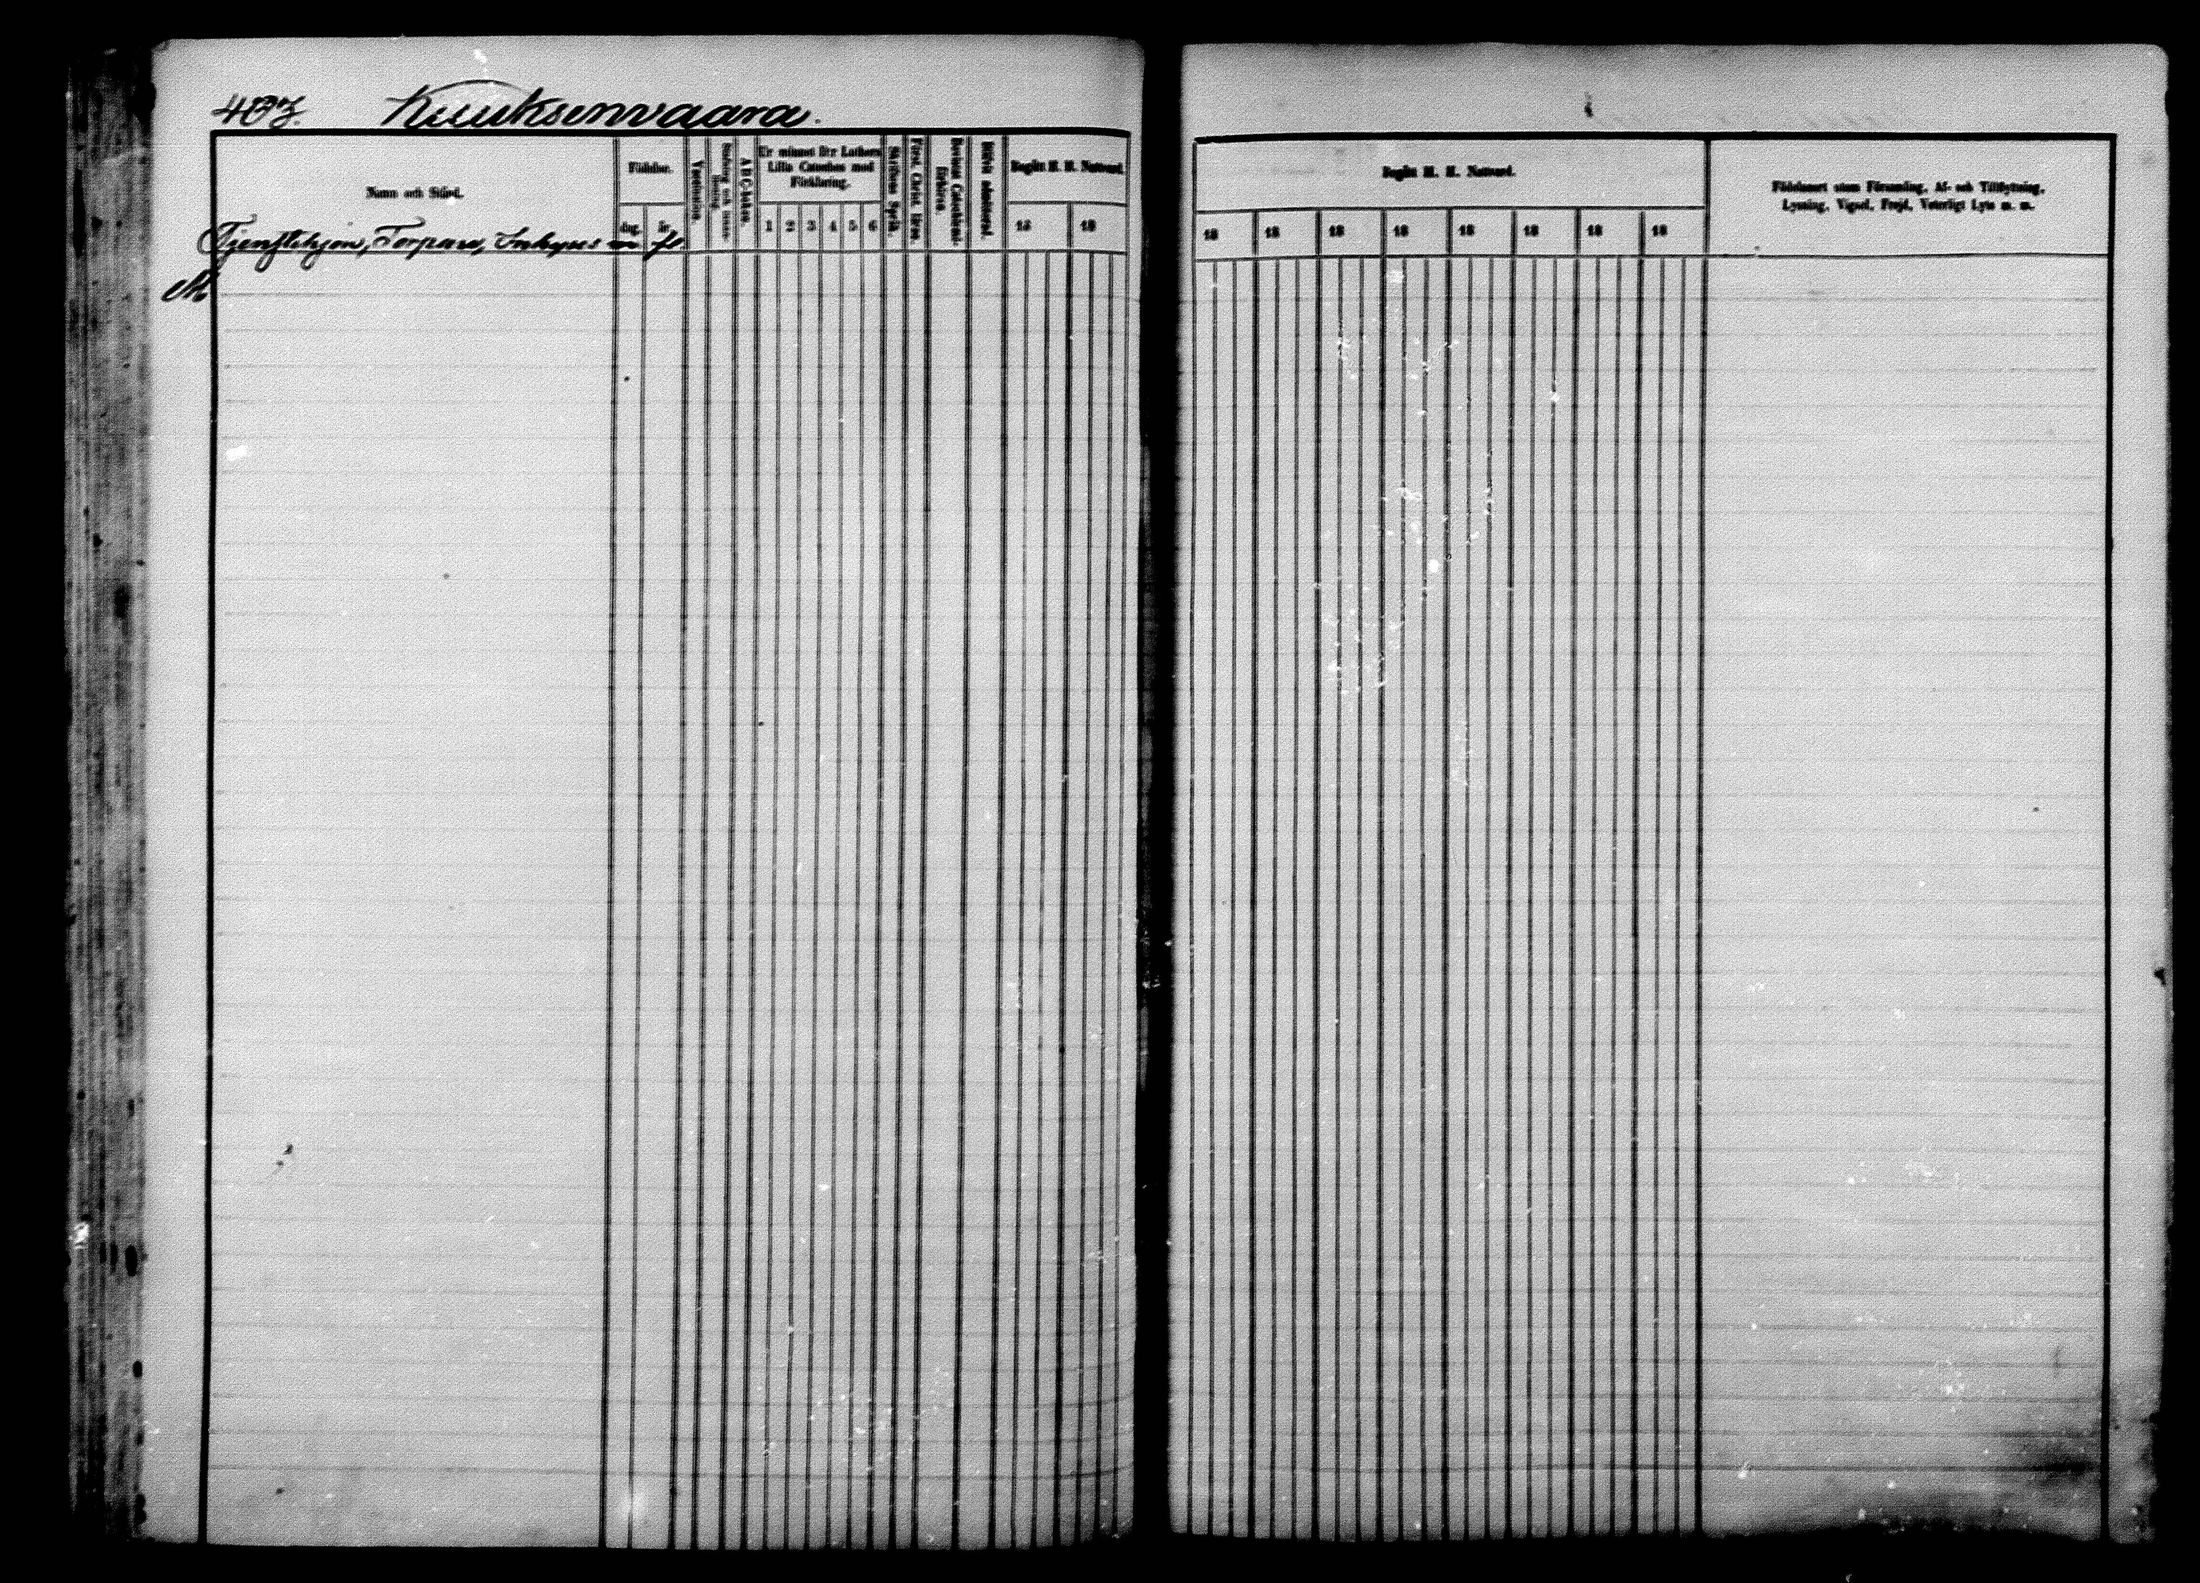 407. Kuuksenvaara.
Namn och Stånd.
Födelse-
dag. år.
Vaccination.
Stafning och innan-läsning.
A B C-boken.
Ur minnet Dr Luthers
Lilla Cateches med
Förklaring.
1 2 3 4 5 6
Skriftens Språk.
Först. Christ. läran.
Bevistat Catechismi-
förhören.
Blifvit admitterad.
Begått H. H. Nattvard
18 18
Tjenstehjon, Torpare, Inhyses m. fl.
M
Begått H. H. Nattvard.
18 18 18 18 18 18 18 18
Födelseort utom Församling, Af- och Tillflyttning,
Lysning, Vigsel, Frejd, Veterligt Lyte m. m.